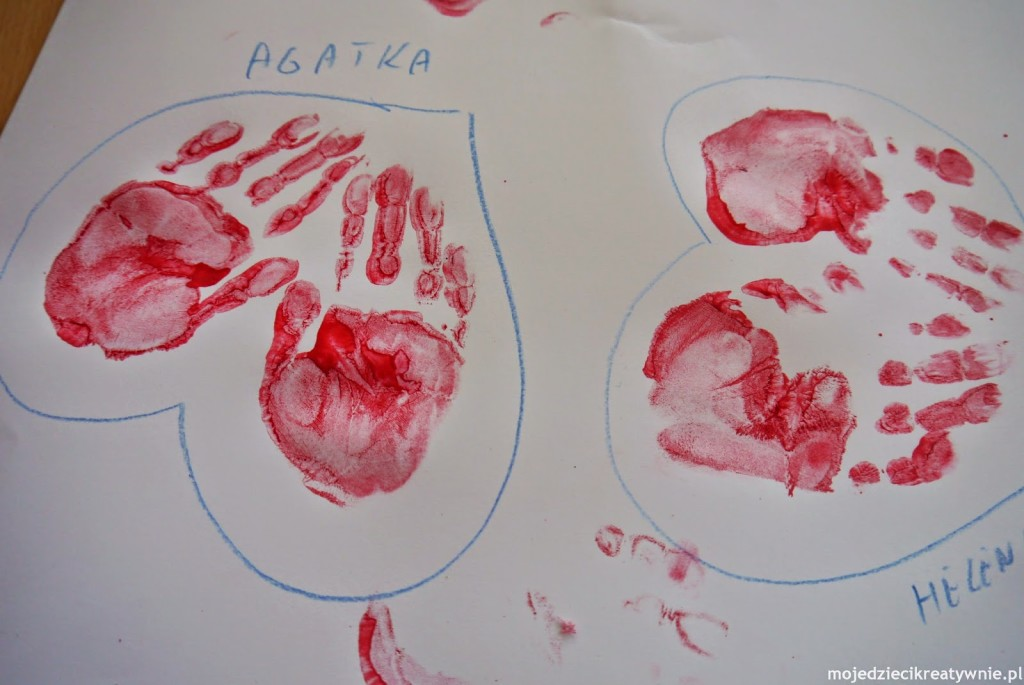 AGATKA
HELEN
mojedziecikreatywnie.pl